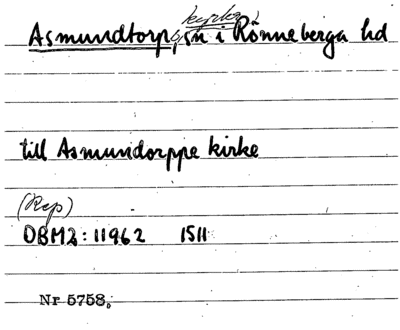 kyrka)
Asmundtorp, sn i Rönneberga hd
till Asmundorppe kirke
(Rep)
DBM2:11962 1511
Nr 5758.